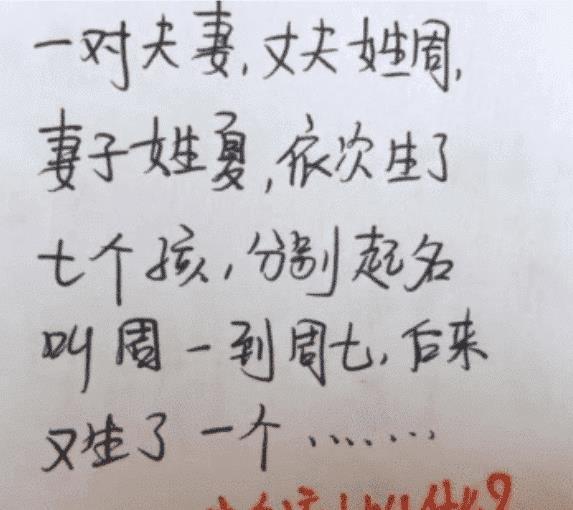 一对夫妻,丈夫姓周,
妻子姓夏,依次生了
七个孩,分别起名
叫周一到周七,后来
又生了一个……